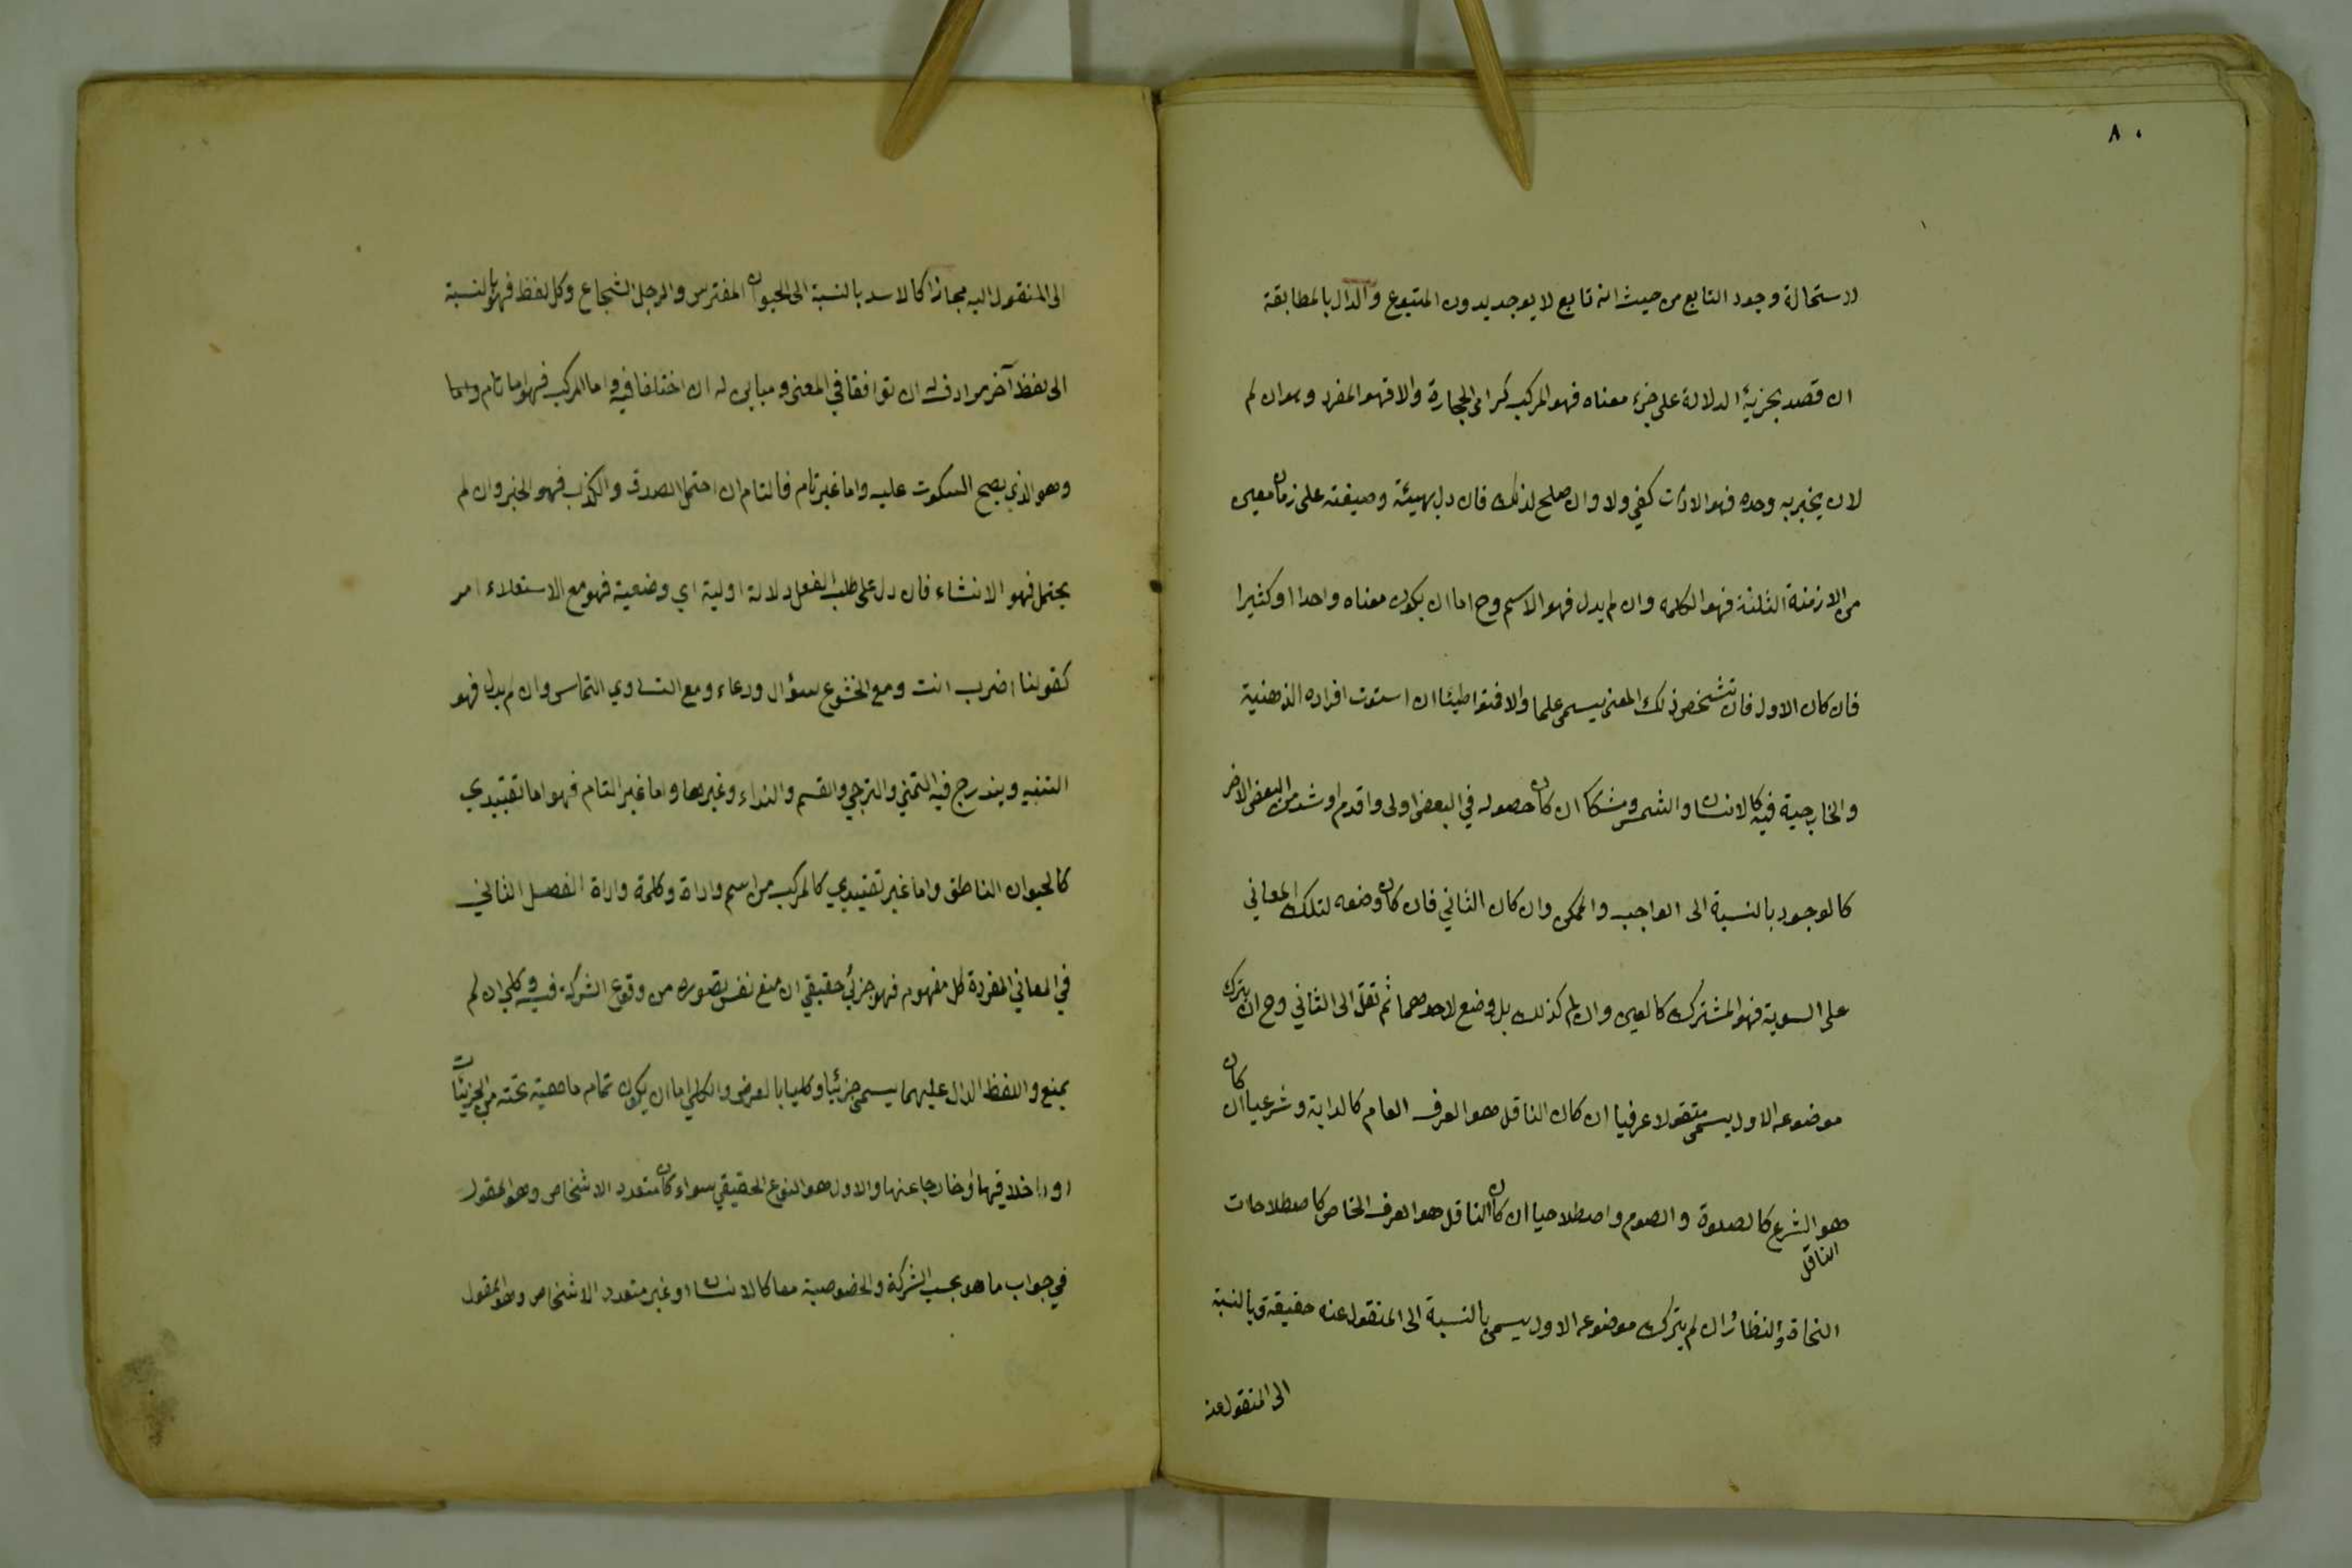 ٨٠
لاستحالة وجود التابع من حيث انه تابع لا يوجد بدون المتبوع والدال بالمطابقة
ان قصد بجزئه الدلالة على جزء معناه فهو المركب كرامي الحجارة والا فهو المفرد وهو ان لم
لان يخبر به وحده فهو الادات كفي ولا وان صلح لذلك فان دل بهيئة وصيغته على زمان معين
من الازمنة الثلثة فهو الكلمه وان لم يدل فهو الاسم وح اما ان يكون معناه واحدا او كثيرا
فان كان الاول فان تشخص ذلك المعنى يسمى علما والا فمتواطيئا ان استوت افراده الذهنية
والخارجية فيه كالانسان والشمس ومشككا ان كان حصوله في البعض اولى واقدم او شد من البعض الاخر
كالوجود بالنسبة الى الواجب والممكن وان كان الثاني فان كان وضعه لتلك المعاني
على السوية فهو المشترك كالعين وان لم كذلك بل وضع لاحدهما ثم نقل الى الثاني وح ان يترك
موضوعه الاول يسمى منقولا عرفيا ان كان الناقل هو العرف العام كالدابة وشرعيا ان كان
الناقل
هو الشرع كالصلوة والصوم واصطلاحيا ان كان الناقل هو العرف الخاص كاصطلاحات
النحاة والنظار ان لم يترك موضوعه الاول يسمى بالنسبة الى المنقول عنه حقيقة وبالنسبة
الى المنقول عنه
الى المنقول اليه مجازا كالاسد بالنسبة الى الحيوان المفترس والرجل الشجاع وكل لفظ فهو بالنسبة
الى لفظ آخر مرادف له ان توافقا في المعنى ومباين له ان اختلفا فيه واما المركب فهو اما تام واما
وهو الذي يصح السكوت عليه واما غير تام فالتام ان احتمل الصدق والكذب فهو الخبر وان لم
يحتمل فهو الانشاء فان دل على طلب الفعل دلالة اولية اي وضعية فهو مع الاستعلاء امر
كقولنا اضرب انت ومع الخشوع سؤال ودعاء ومع التساوي التماس وان لم يدل فهو
التنبيه ويندرج فيه التمني والترجي والقسم والنداء وغيرها واما غير التام فهو اما تقييدي
كالحيوان الناطق واما غير تقييدي كالمركب من اسم واداة وكلمة واداة الفصل الثاني
في المعاني المفردة كل مفهوم فهو جزئي حقيقي ان منع نفس تصوره من وقوع الشركة فيه وكلي ان لم
يمنع واللفظ الدال عليهما يسمى جزئيا وكليا بالعرض والكلي اما ان يكون تمام ماهية تحته من الجزئيات
او داخلا فيها او خارجا عنها والاول هو النوع الحقيقي سواء كان متعدد الاشخاص وهو المقول
في جواب ما هو بحسب الشركة والخصوصية معا كالانسان او غير متعدد الاشخاص وهو المقول